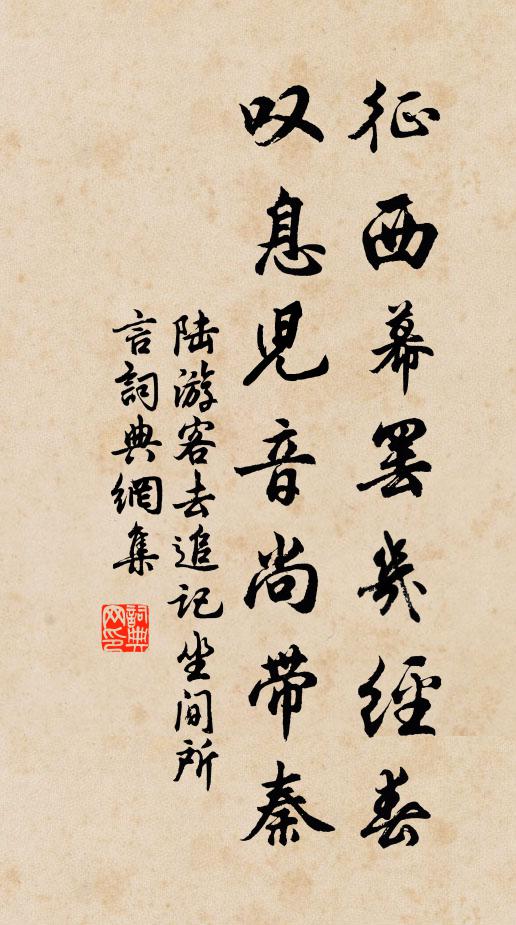 征西幕罢几經春
叹息児音尚帶秦
陆游客去追记坐间所
言詞典網集
詞典网印